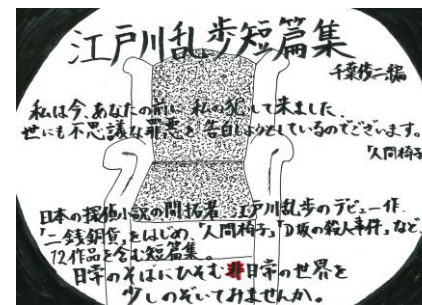 江戸川乱歩短篇集
千葉俊二編
私は今、あなたの前に、私の犯して来ました、
世にも不思議な罪悪を告白しようとしているのでございます。
「人間椅子」
日本の探偵小説の開拓者 江戸川乱歩のデビュー作
「二銭銅貨」をはじめ、「人間椅子」「D坂の殺人事件」など、
12作品を含む短篇集。
日常のそばにひそむ非日常の世界を
少しのぞいてみませんか。